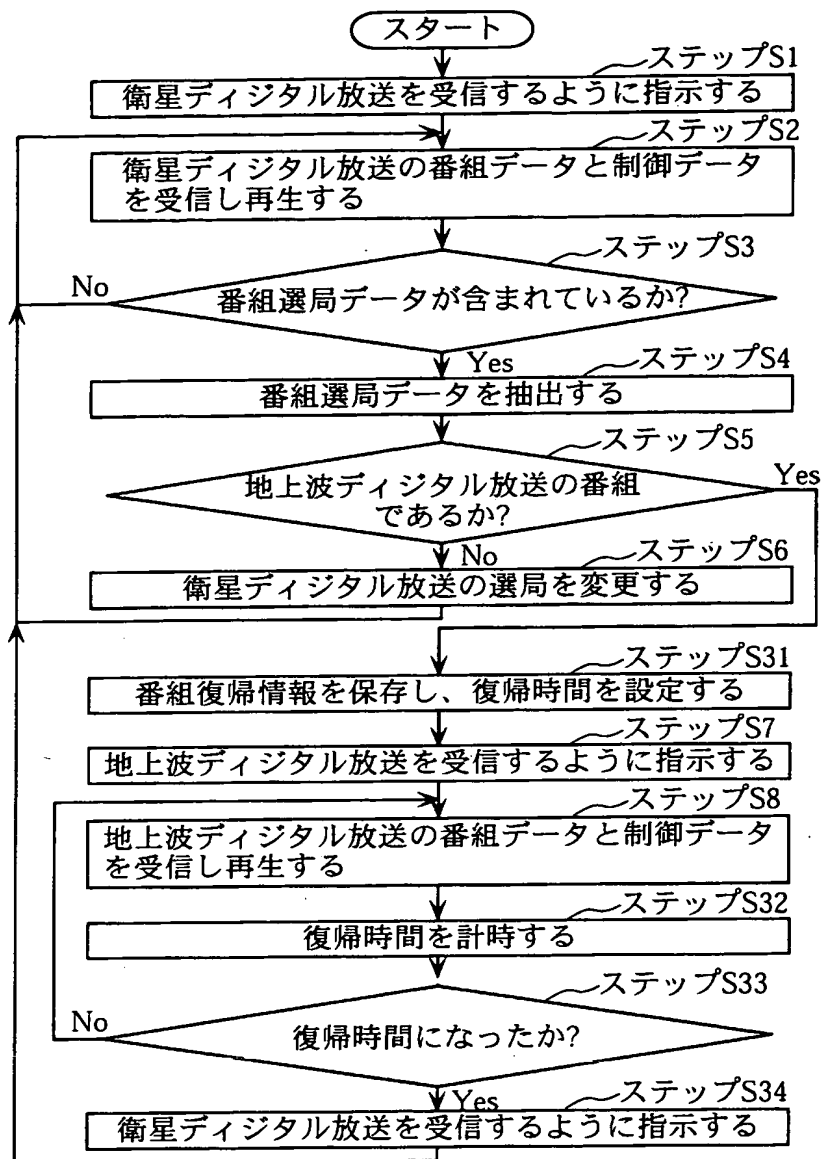 スタート
ステップS1
衛星ディジタル放送を受信するように指示する
ステップS2
衛星ディジタル放送の番組データと制御データ
を受信し再生する
ステップS3
No
番組選局データが含まれているか?
Yes
ステップS4
番組選局データを抽出する
ステップS5
Yes
地上波ディジタル放送の番組
であるか?
No
ステップS6
衛星ディジタル放送の選局を変更する
ステップS31
番組復帰情報を保存し、復帰時間を設定する
ステップS7
地上波ディジタル放送を受信するように指示する
ステップS8
地上波ディジタル放送の番組データと制御データ
を受信し再生する
ステップS32
復帰時間を計時する
ステップS33
No
復帰時間になったか?
Yes
ステップS34
衛星ディジタル放送を受信するように指示する